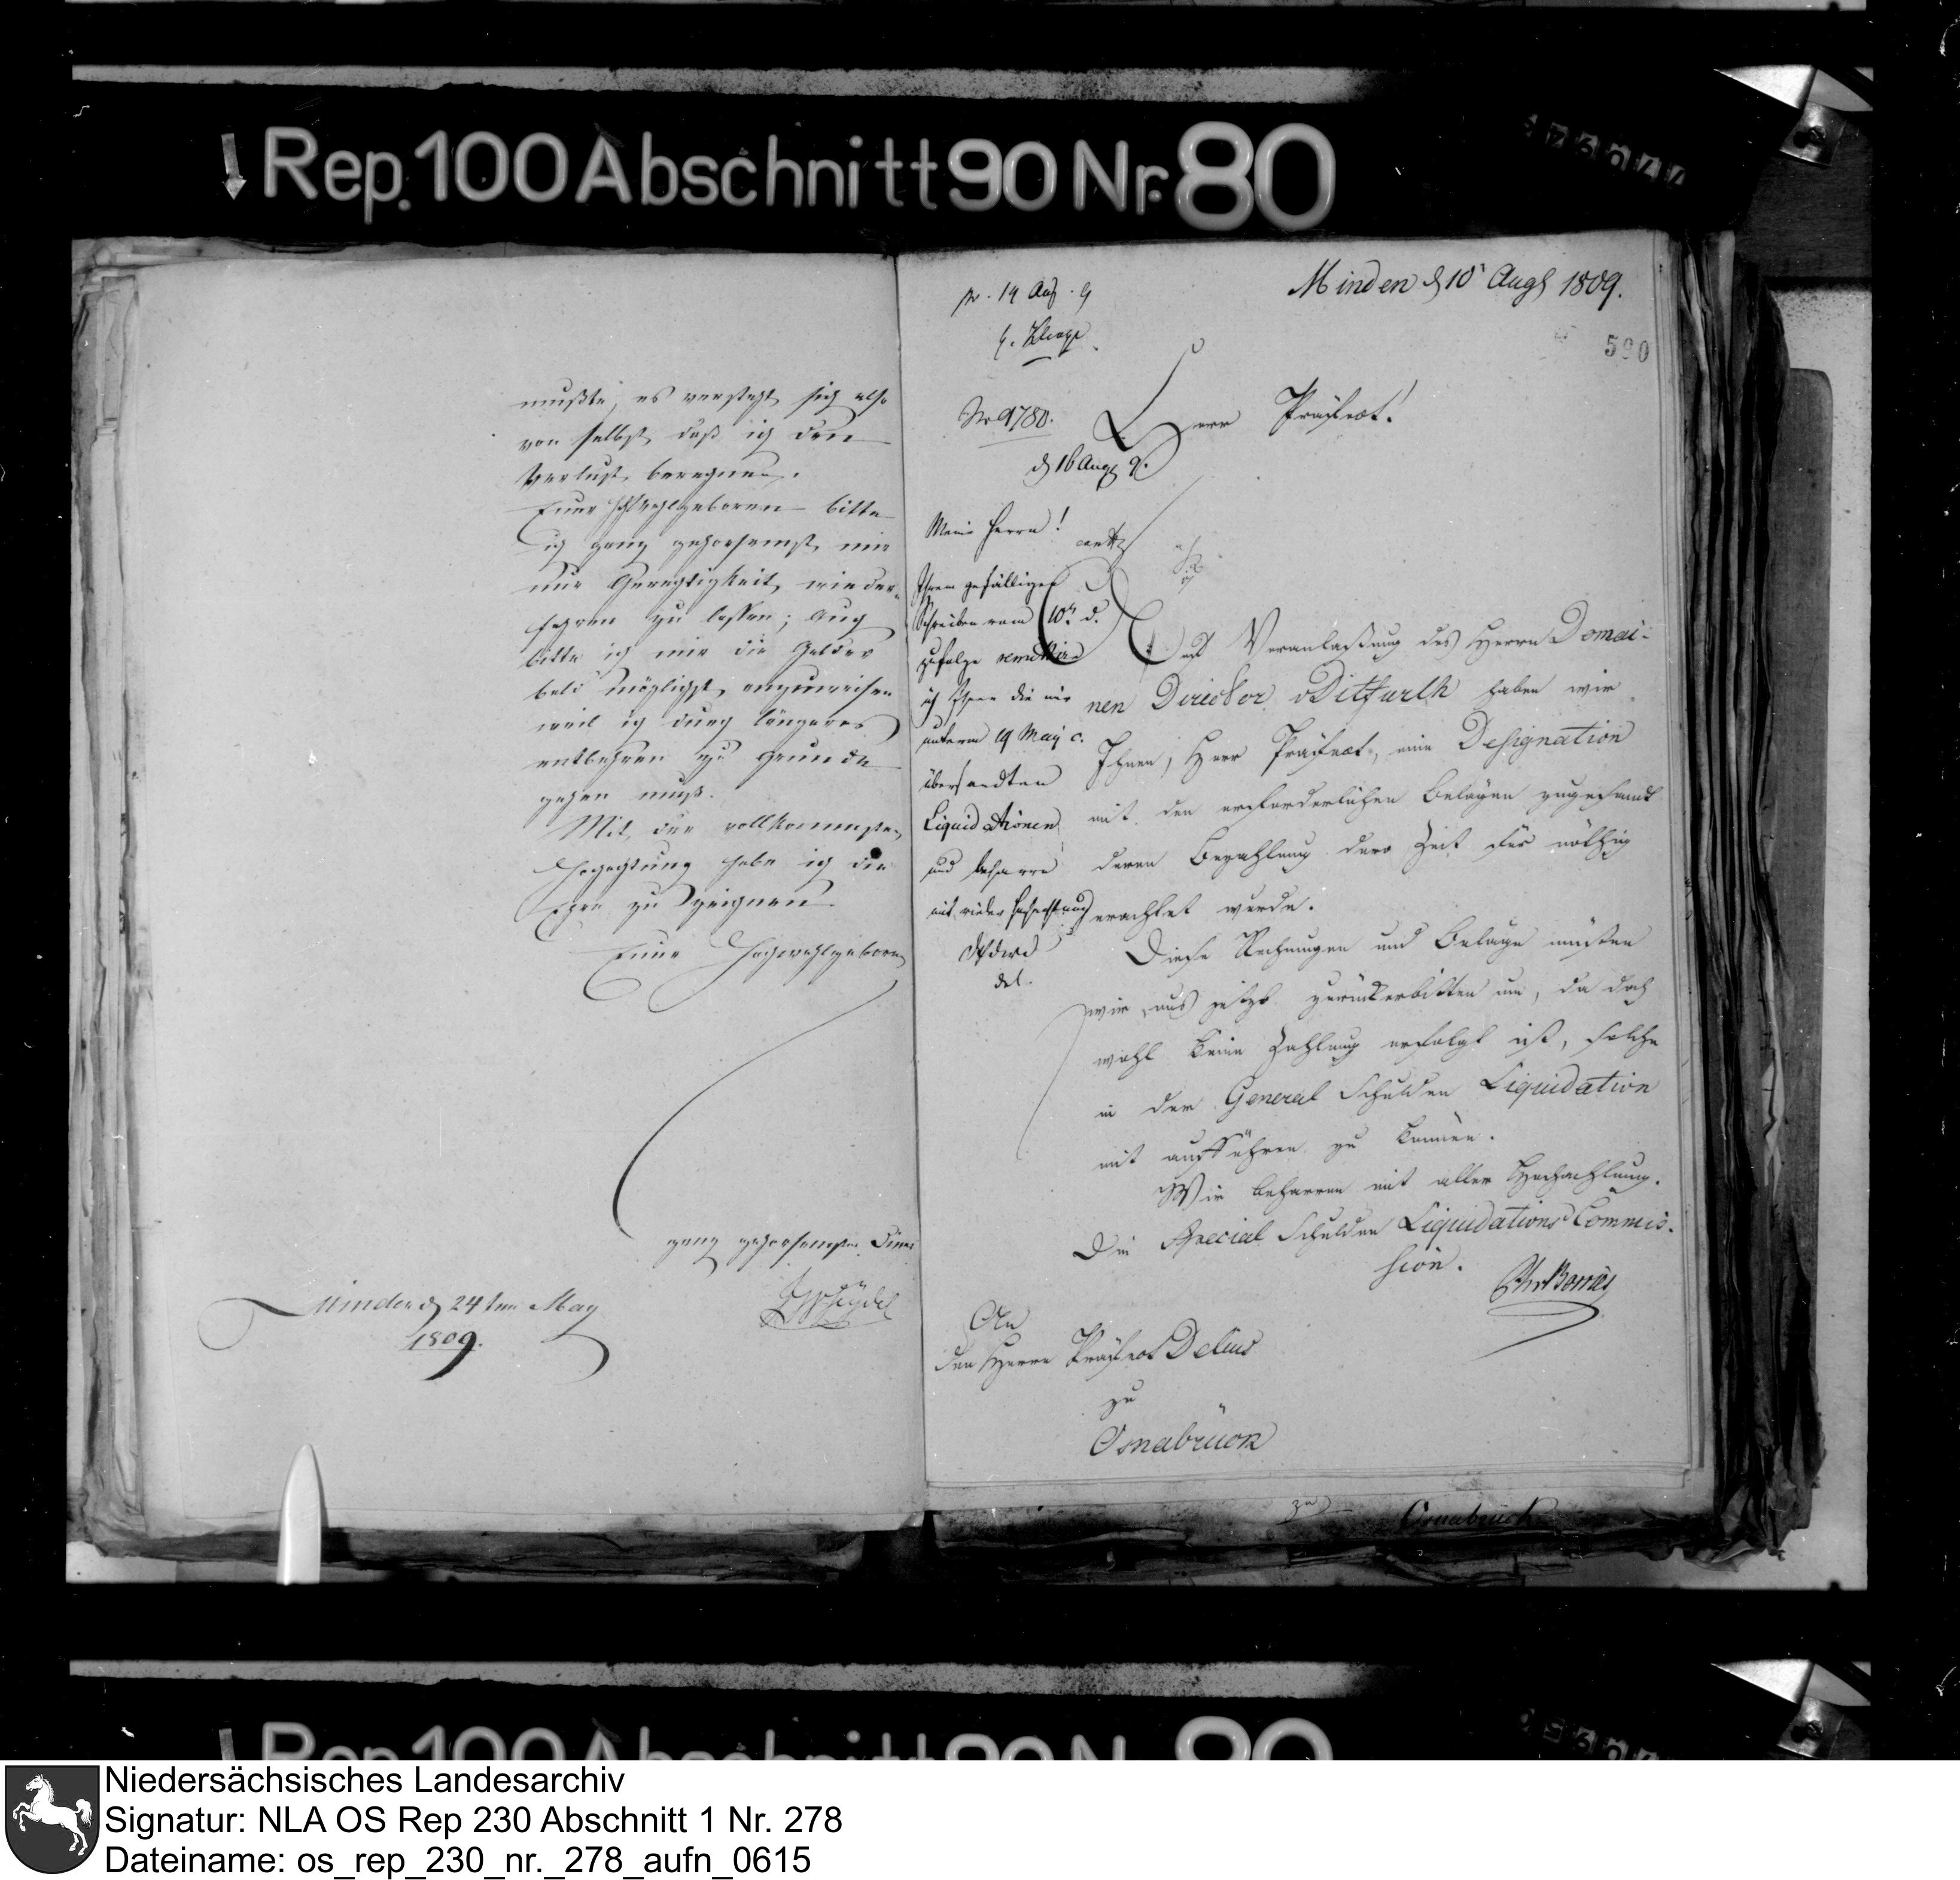 Rep. 100 Abschnitt 90 Nr. 80
mußte, es versteht sich also
von selbst, daß ich den
Verlust berechne.
Euer Hochwohlgeboren bitte
ich ganz gehorsamst, mir
nur Gerechtigkeit wieder-
fahren zu lassen; auch
bitte ich mir die Gelder
bald möglichst anzuweisen
weil ich durch längeres
entbehren zu Grunde
gehen muß.
Mit der vollkommensten
Hochachtung habe ich die
Ehre zu zeichnen
Euer Hochwohlgeboren
ganz gehorsamster Diener
Minden d 24ten May
1809.
Minden d 10 Aug 1809.
590
pr. 14 Aug. 9
No 9780.
d 16 Aug 9.
Herr Präfect!
Meine Herrn!
Ihrem gefälligen
Schreiben vom 10n d.
zufolge remittire
ich Ihnen die mir
unterm 19 May c.
übersandten
Liquidationen
und beharre
mit vieler Hochachtung
Auf Veranlaßung des Herrn Domai-
nen Director vDitfurth haben wir
Ihnen, Herr Präfect, eine Designation
mit den erforderlichen Belägen zugesandt
deren Bezahlung derzeit für nöthig
erachtet wurde.
Diese Rechnungen und Beläge müßen
wir uns jetzt zurückerbitten um, da doch
wohl keine Zahlung erfolgt ist, solche
in der General Schulden Liquidation
mit aufführen zu können.
Wir beharren mit aller Hochachtung.
Die Special Schulden Liquidations Commis-
sion.
An
den Herrn Präfect Delius
zu
Osnabrück
zu Osnabrück
Niedersächsisches Landesarchiv
Signatur: NLA OS Rep 230 Abschnitt 1 Nr. 278
Dateiname: os_rep_230_nr._278_aufn_0615